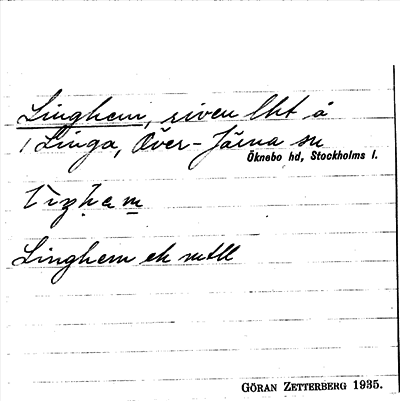 Linghem, riven lht å
Linga, Över-Järna sn
Öknebo hd, Stockholms l.
Linghem ek mtll
GÖRAN ZETTERBERG 1935.